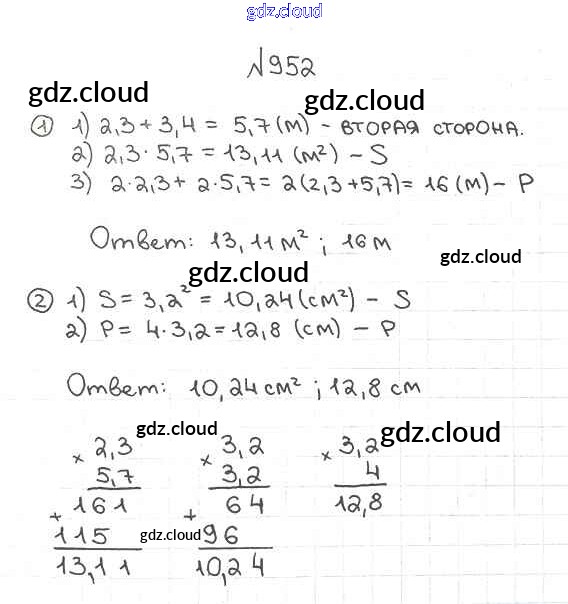 gdz.cloud
№952
gdz.cloud gdz.cloud
① 1) 2,3 + 3,4 = 5,7 (м) - ВТОРАЯ СТОРОНА.
2) 2,3 · 5,7 = 13,11 (м²) - S
3) 2·2,3 + 2·5,7 = 2(2,3+5,7) = 16 (м) - P
Ответ: 13,11 м² ; 16 м
gdz.cloud
gdz.cloud
② 1) S = 3,2² = 10,24 (см²) - S
2) P = 4·3,2 = 12,8 (см) - P
Ответ: 10,24 см² ; 12,8 см
gdz.cloud gdz.cloud
× 2,3
5,7
161
+
115
13,11
× 3,2
3,2
64
+
96
10,24
× 3,2
4
12,8
gdz.cloud